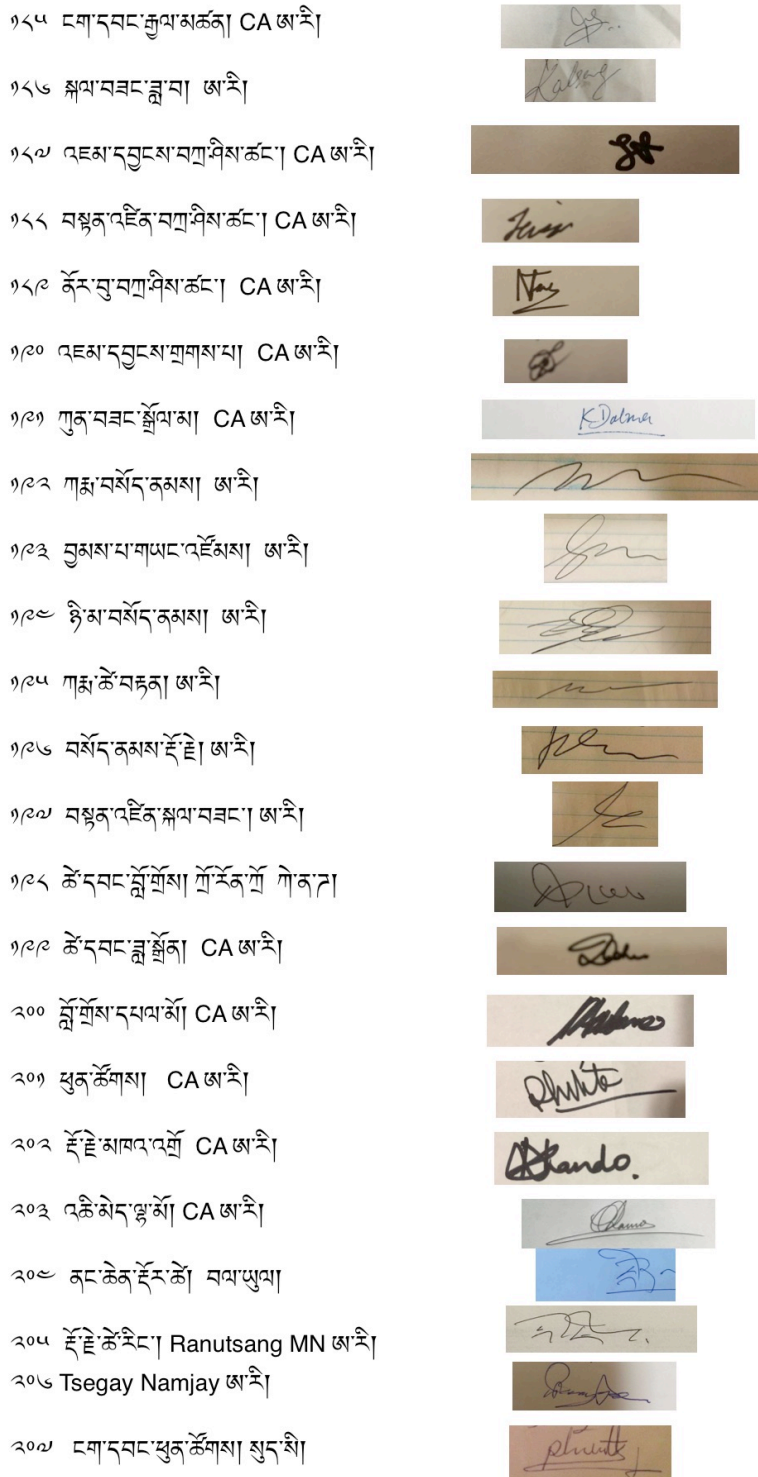 ༡༨༥ ངག་དབང་རྒྱལ་མཚན། CA ཨ་རི།
༡༨༦ སྐལ་བཟང་ཟླ་བ། ཨ་རི། Kalsang
༡༨༧ འཇམ་དབྱངས་བཀྲ་ཤིས་ཚང་། CA ཨ་རི།
༡༨༨ བསྟན་འཛིན་བཀྲ་ཤིས་ཚང་། CA ཨ་རི།
༡༨༩ ནོར་བུ་བཀྲ་ཤིས་ཚང་། CA ཨ་རི།
༡༩༠ འཇམ་དབྱངས་གྲགས་པ། CA ཨ་རི།
༡༩༡ ཀུན་བཟང་སྒྲོལ་མ། CA ཨ་རི། K Dolma
༡༩༢ ཀརྨ་བསོད་ནམས། ཨ་རི།
༡༩༣ བྱམས་པ་གཡང་འཛོམས། ཨ་རི།
༡༩༤ ཉི་མ་བསོད་ནམས། ཨ་རི།
༡༩༥ ཀརྨ་ཚེ་བརྟན། ཨ་རི།
༡༩༦ བསོད་ནམས་རྡོ་རྗེ། ཨ་རི།
༡༩༧ བསྟན་འཛིན་སྐལ་བཟང་། ཨ་རི།
༡༩༨ ཚེ་དབང་བློ་གྲོས། ཀྲོ་རོན་ཀྲོ ཀེ་ན་ཌ།
༡༩༩ ཚེ་དབང་ཟླ་སྒྲོན། CA ཨ་རི།
༢༠༠ བློ་གྲོས་དཔལ་མོ། CA ཨ་རི།
༢༠༡ ཕུན་ཚོགས། CA ཨ་རི།
༢༠༢ རྡོ་རྗེ་མཁའ་འགྲོ CA ཨ་རི།
༢༠༣ འཆི་མེད་ལྷ་མོ། CA ཨ་རི།
༢༠༤ ནང་ཆེན་རྡོར་ཚེ། བལ་ཡུལ།
༢༠༥ རྡོ་རྗེ་ཚེ་རིང་། Ranutsang MN ཨ་རི།
༢༠༦ Tsegay Namjay ཨ་རི།
༢༠༧ ངག་དབང་ཕུན་ཚོགས། སུད་སི།